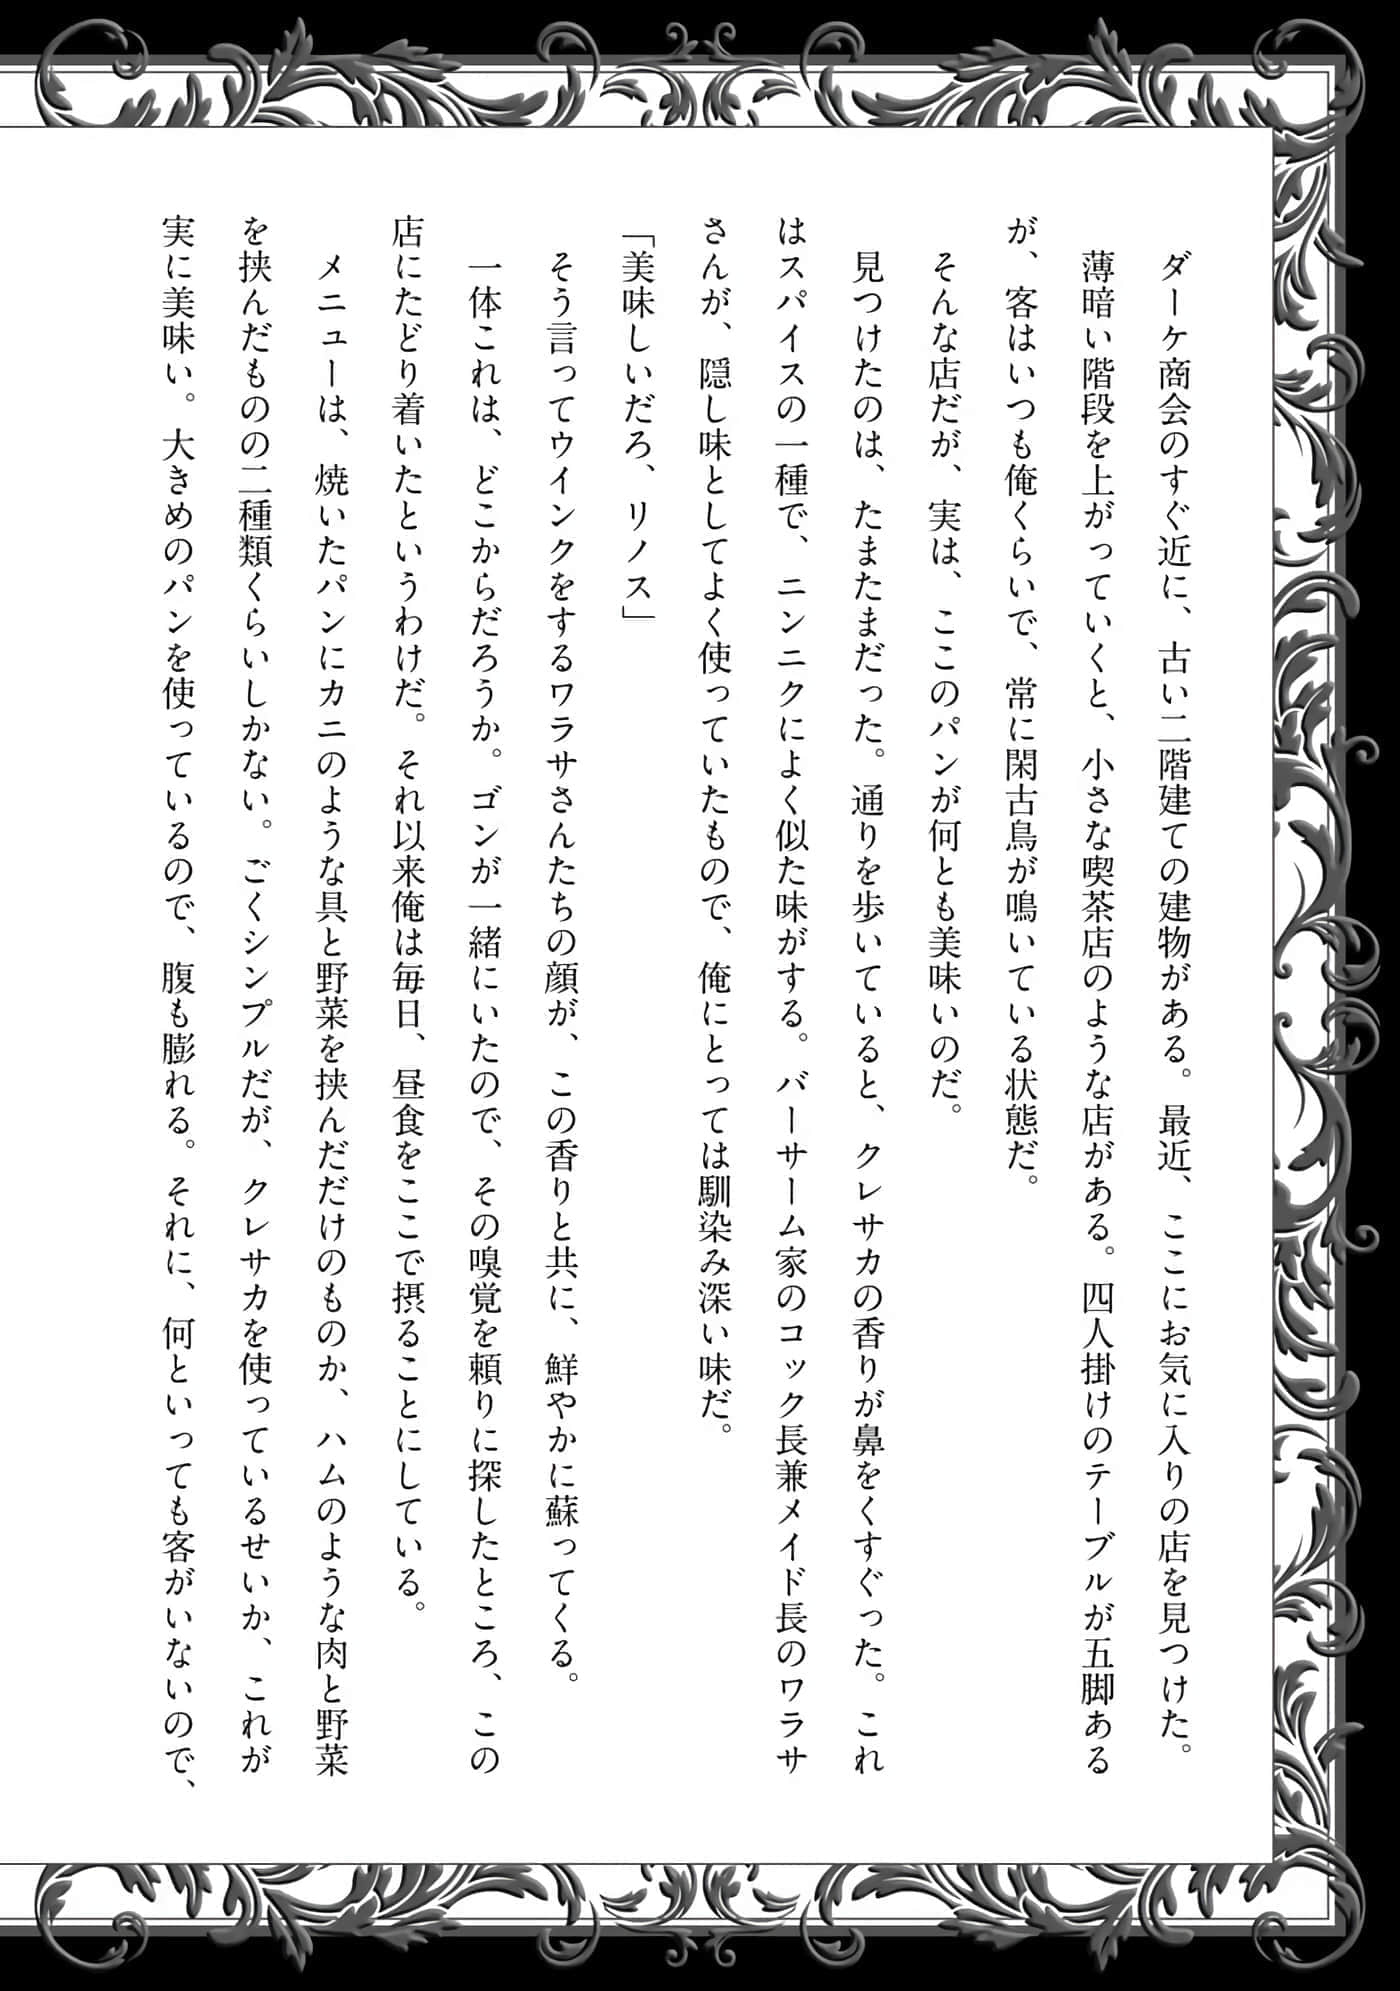 ダーケ商会のすぐ近に、古い二階建ての建物がある。最近、ここにお気に入りの店を見つけた。
薄暗い階段を上がっていくと、小さな喫茶店のような店がある。四人掛けのテーブルが五脚ある
が、客はいつも俺くらいで、常に閑古鳥が鳴いている状態だ。
そんな店だが、実は、ここのパンが何とも美味いのだ。
見つけたのは、たまたまだった。通りを歩いていると、クレサカの香りが鼻をくすぐった。これ
はスパイスの一種で、ニンニクによく似た味がする。バーサーム家のコック長兼メイド長のワラサ
さんが、隠し味としてよく使っていたもので、俺にとっては馴染み深い味だ。
「美味しいだろ、リノス」
そう言ってウインクをするワラサさんたちの顔が、この香りと共に、鮮やかに蘇ってくる。
一体これは、どこからだろうか。ゴンが一緒にいたので、その嗅覚を頼りに探したところ、この
店にたどり着いたというわけだ。それ以来俺は毎日、昼食をここで摂ることにしている。
メニューは、焼いたパンにカニのような具と野菜を挟んだだけのものか、ハムのような肉と野菜
を挟んだものの二種類くらいしかない。ごくシンプルだが、クレサカを使っているせいか、これが
実に美味い。大きめのパンを使っているので、腹も膨れる。それに、何といっても客がいないので、